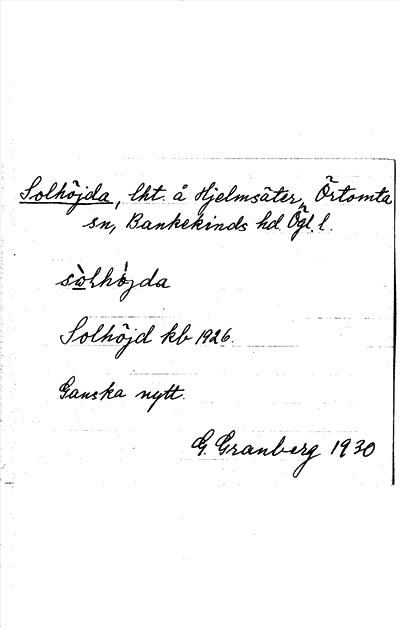 Solhöjda, lht. å Hjelmsäter, Örtomta
sn, Bankekinds hd. Ögl. l.
sὼlhὸjda
Solhöjd kb 1926.
Ganska nytt.
G. Granberg 1930